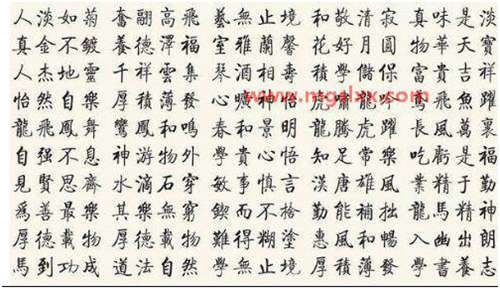 人淡如菊 奮翮高飛 藝無止境 和敬清寂 真味是淡
真金不鍍 養德澤福 室雅蘭馨 花好月圓 物華天寶
人杰地靈 千祥雲集 琴酒相壽 學儲 富貴吉祥
怡然自樂 厚積薄發 心曠神怡 虎龍躍 鳶飛魚
www.mgalxx.com
龍飛鳳舞 鸞鳳和鳴 春和景明 龍騰虎躍 長風萬裏
自强不息 神游物外 學貴心悟 知足常樂 吃虧是福
見賢思齊 水滴石穿 敏事慎言 漢唐雄風 業精于勤
爲善最樂 其樂無窮 鍥而不捨 勤能補拙 龍馬精神
厚德載物 厚德載物 難得糊塗 惠風和暢 入幽出朗
馬到功成 道法自然 學無止境 厚積薄發 學書養志